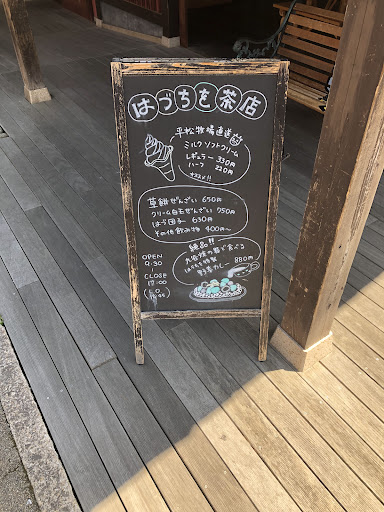 はづちを茶店
平松牧場直送
ミルクソフトクリーム
レギュラー 330円
ハーフ 220円
オススメ!!
草餅ぜんざい 650円
クリーム白玉ぜんざい 750円
はづ団子 630円
その他飲み物 400円〜
絶品!!
九谷焼の器で食べる
はづちを特製
野菜カレー 880円
OPEN
9:30
CLOSE
17:00
L.O